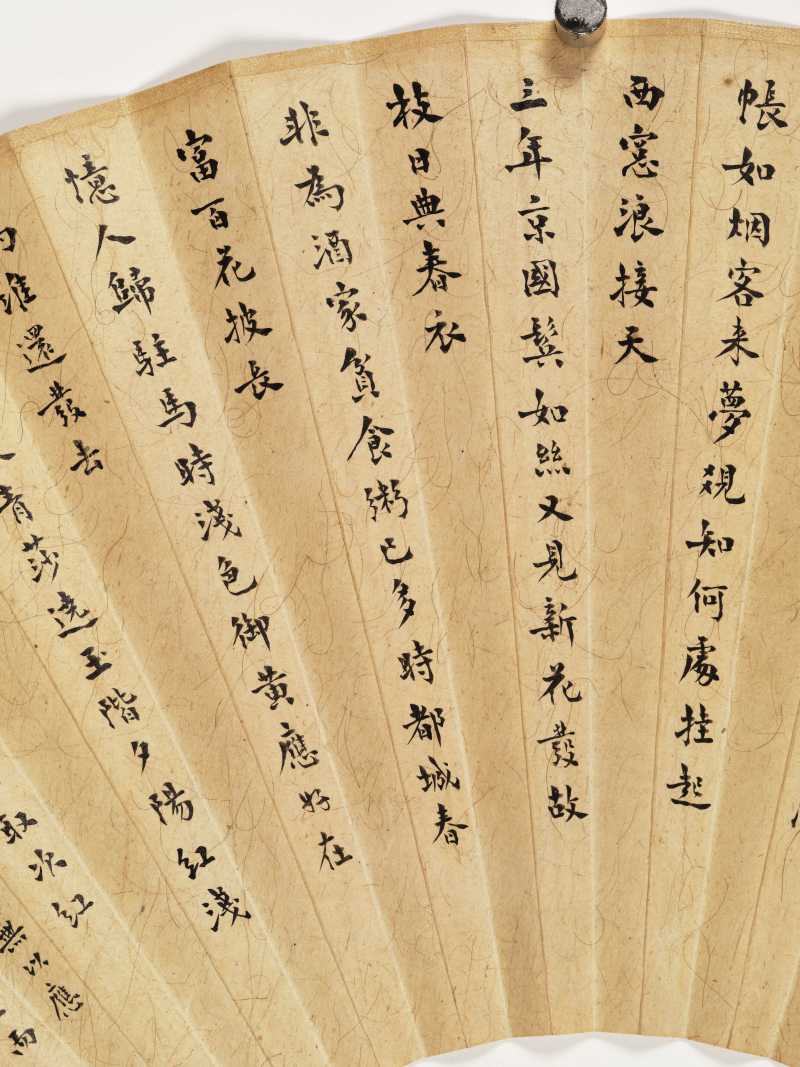 帳如烟客来夢覺知何處挂起
西窓浪接天
三年京國鬢如絲又見新花發故
枝日典春衣
非為酒家貧食粥已多時都城春
富百花披長
憶人歸駐馬時淺色御黃應好在
向誰還發去
人青莎遶玉階夕陽紅淺
取次紅
無以應
而